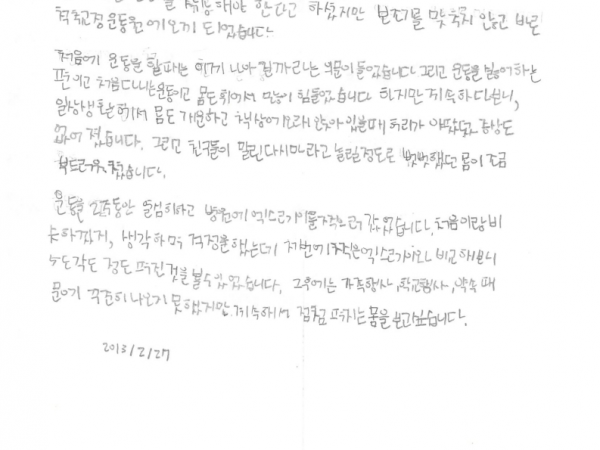 착용해야 한다고 하셨지만 보조기를 맞추지 않고 바로
척추교정운동원에 오게 되었습니다.
처음에 운동을 할때는 이게 나아 질까라는 의문이 들었습니다 그리고 운동을 싫어하는
편이고 처음다니는 운동이고 몸도 휘어서 많이 힘들었습니다 하지만 계속하다보니,
일상생활하면서 몸도 개운하고 책상에 오래 앉아 있을때 허리가 아팠었던 증상도
없어 졌습니다. 그리고 친구들이 말린다시마라고 놀릴정도로 뻣뻣했던 몸이 조금
부드러워 졌습니다.
운동을 2주동안 열심히하고 병원에 엑스레이를 찍으러 갔었습니다. 처음이랑 비
슷하겠지, 생각하며 걱정을 했는데 저번에 찍은 엑스레이와 비교해보니
5도각도 정도 펴진것을 볼수 있었습니다. 그후에는 가족행사, 학교행사, 약속 때
문에 꾸준히 나오지 못했지만 계속해서 점점 펴지는 몸을 보고싶습니다.
2013/2/27